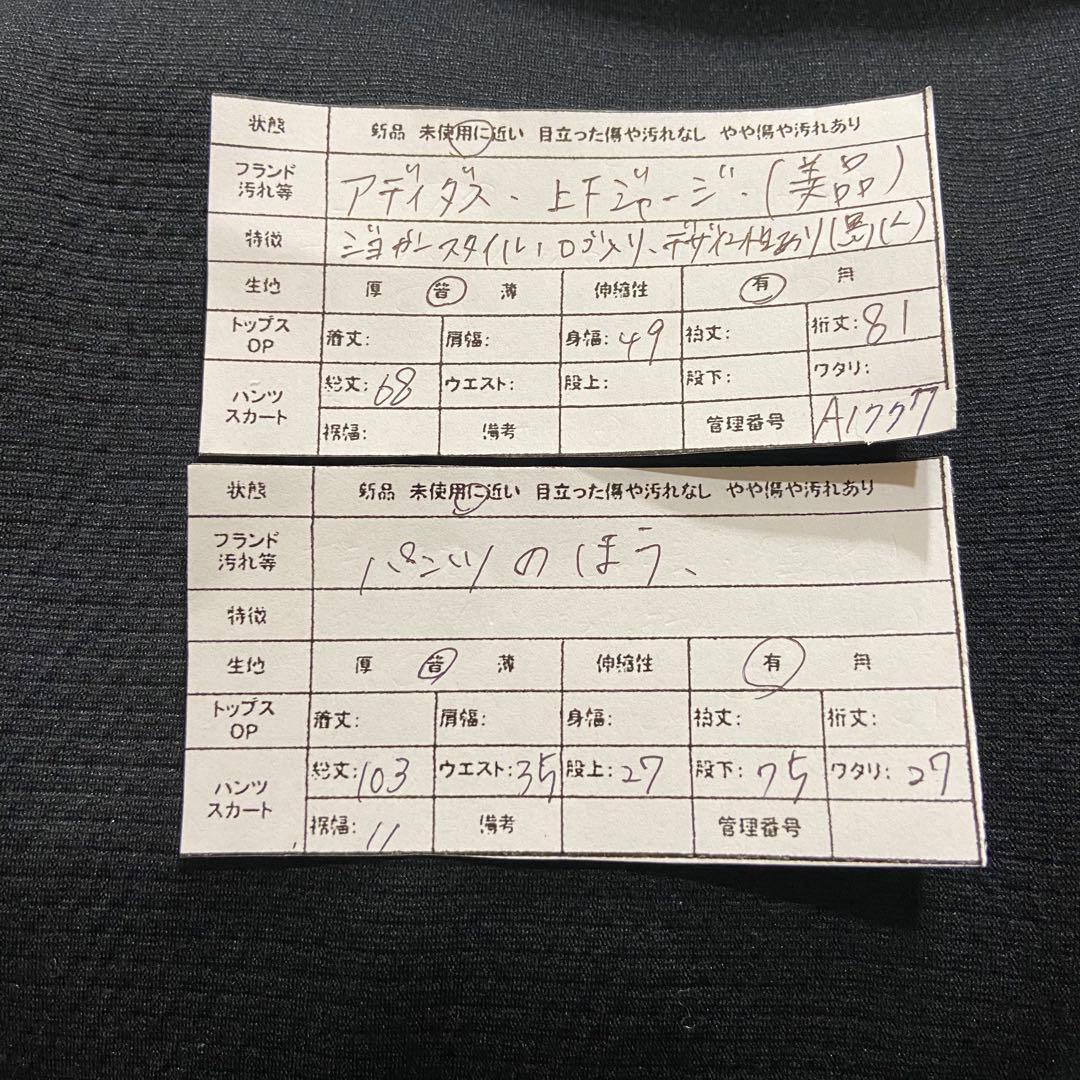 状態 新品 未使用に近い 目立った傷や汚れなし やや傷や汚れあり
ブランド 汚れ等 アディダス、上下ジャージ、(美品)
特徴 ジョガースタイル、ロゴ入り、デザイン性あり(黒)(L)
生地 厚 普 薄 伸縮性 有 無
トップス OP 着丈: 肩幅: 身幅:49 袖丈: 裄丈:81
パンツ スカート 総丈:68 ウエスト: 股上: 股下: ワタリ:
裾幅: 備考 管理番号 A1777
状態 新品 未使用に近い 目立った傷や汚れなし やや傷や汚れあり
ブランド 汚れ等 パンツのほう、
特徴
生地 厚 普 薄 伸縮性 有 無
トップス OP 着丈: 肩幅: 身幅: 袖丈: 裄丈:
パンツ スカート 総丈:103 ウエスト:35 股上:27 股下:75 ワタリ:27
裾幅:11 備考 管理番号